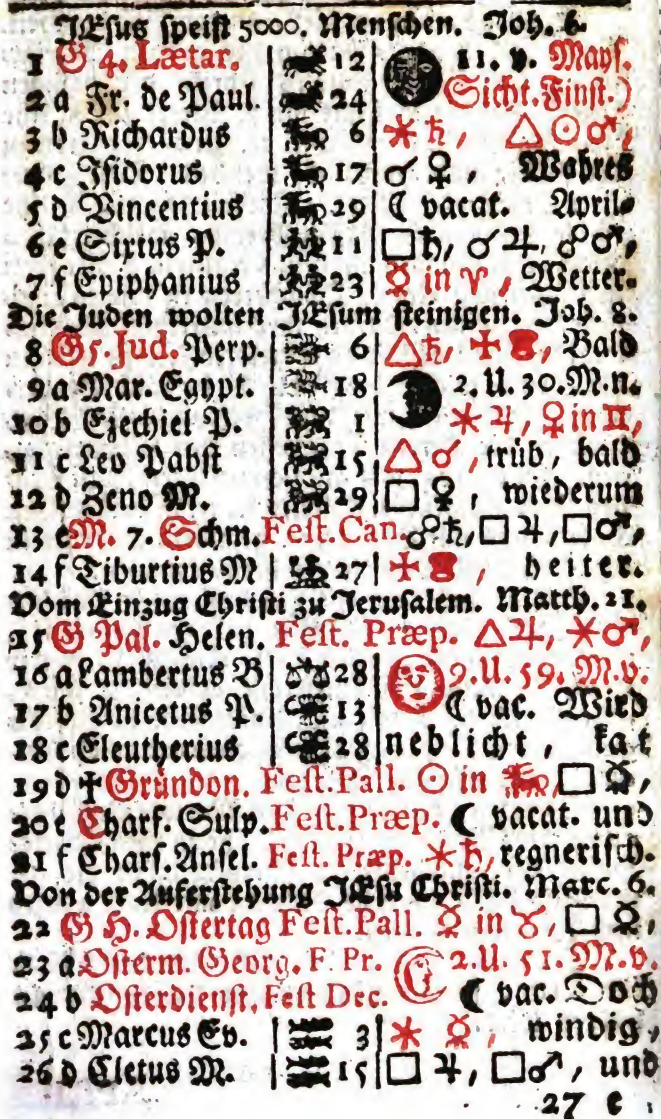 JEsus speist 5000. Menschen. Joh. 6.
1 G 4. Lætar. 12 11. v. Mays.
2 a Fr. de Paul. 24 Sicht. Finst.)
3 b Richardus 6 ⚹ ♄, △ ☉ ♂,
4 c Isidorus 17 ☌ ♀, Wahres
5 d Vincentius 29 ☾ vacat. April-
6 e Sixtus P. 11 □ ♄, ☌ ♃, ☍ ♂,
7 f Epiphanius 23 ☿ in ♈, Wetter.
Die Juden wolten JEsum steinigen. Joh. 8.
8 G 5. Jud. Perp. 6 △ ♄, Bald
9 a Mar. Egypt. 18 2. U. 30. M. n.
10 b Ezechiel P. 1 ⚹ ♃, ♀ in ♊,
11 c Leo Pabst 15 △ ♂, trüb, bald
12 d Zeno M. 29 □ ♀, wiederum
13 e M. 7. Schm. Fest. Can. ☍ ♄, □ ♃, □ ♂,
14 f Tiburtius M 27 heiter.
Vom Einzug Christi zu Jerusalem. Matth. 21.
15 G Pal. Helen. Fest. Præp. △ ♃, ⚹ ♂,
16 a Lambertus B 28 9. U. 59. M. v.
17 b Anicetus P. 13 ☾ vac. Wird
18 c Eleutherius 28 neblicht, kat
19 d † Gründon. Fest. Pall. ☉ in □ ☿,
20 e Charf. Sulp. Fest. Præp. ☾ vacat. und
21 f Chars. Ansel. Fest. Præp. ⚹ ♄, regnerisch.
Von der Auferstehung JEsu Christi. Marc. 6.
22 G H. Ostertag Fest. Pall. ☿ in ♉, □ ☿,
23 a Osterm. Georg. F. Pr. 2. U. 51. M. v.
24 b Osterdienst, Fest Dec. ☾ vac. Doch
25 c Marcus Ev. 3 ⚹ ☿, windig,
26 d Cletus M. 15 □ ♃, □ ♂, und
27 e